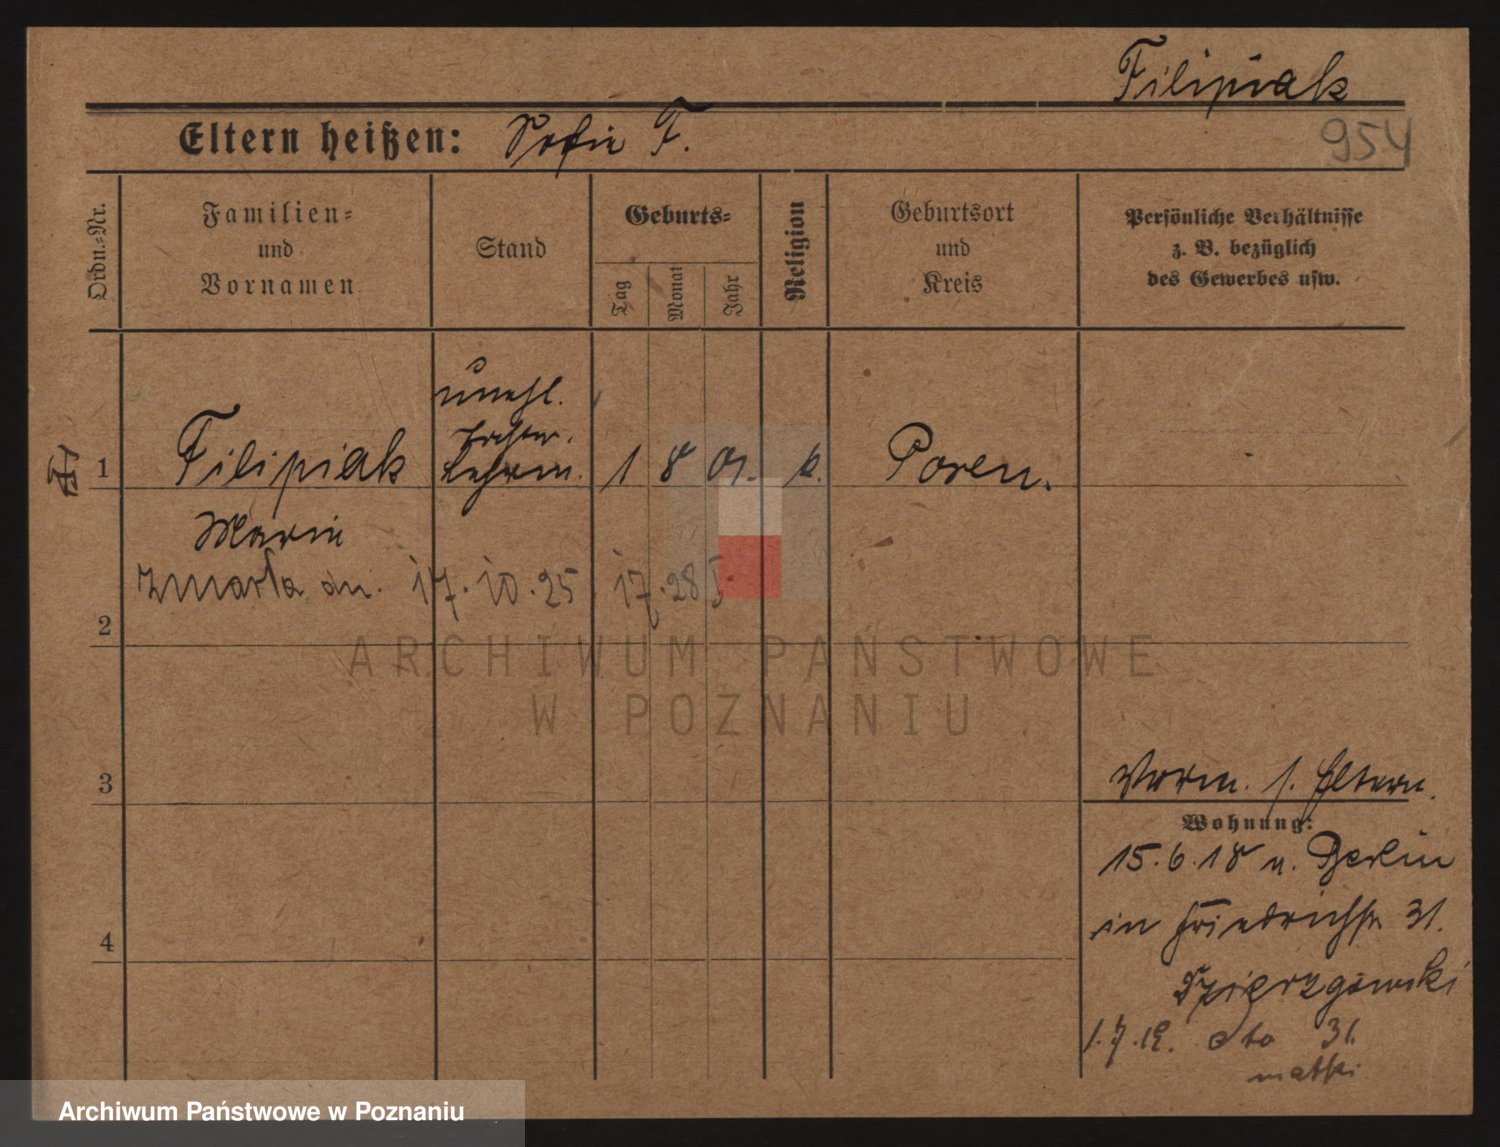 Filipiak
Eltern heißen: Sofie F.
954
Ordn.-Nr.
Familien-
und
Vornamen
Stand
Geburts-
Tag
Monat
Jahr
Religion
Geburtsort
und
Kreis
Persönliche Verhältnisse
z. B. bezüglich
des Gewerbes usw.
unehl.
1 Filipiak 1 8 01. k. Posen.
Marie
zmarła dn. 17.10.25 17.28
2
ARCHIWUM PAŃSTWOWE
W POZNANIU
3
Vorm. s. Eltern.
Wohnung:
15.6.18 n. Berlin
in Friedrichstr 31.
4
Dzierzgowski
1.7.19. dto 31.
matki
Archiwum Państwowe w Poznaniu